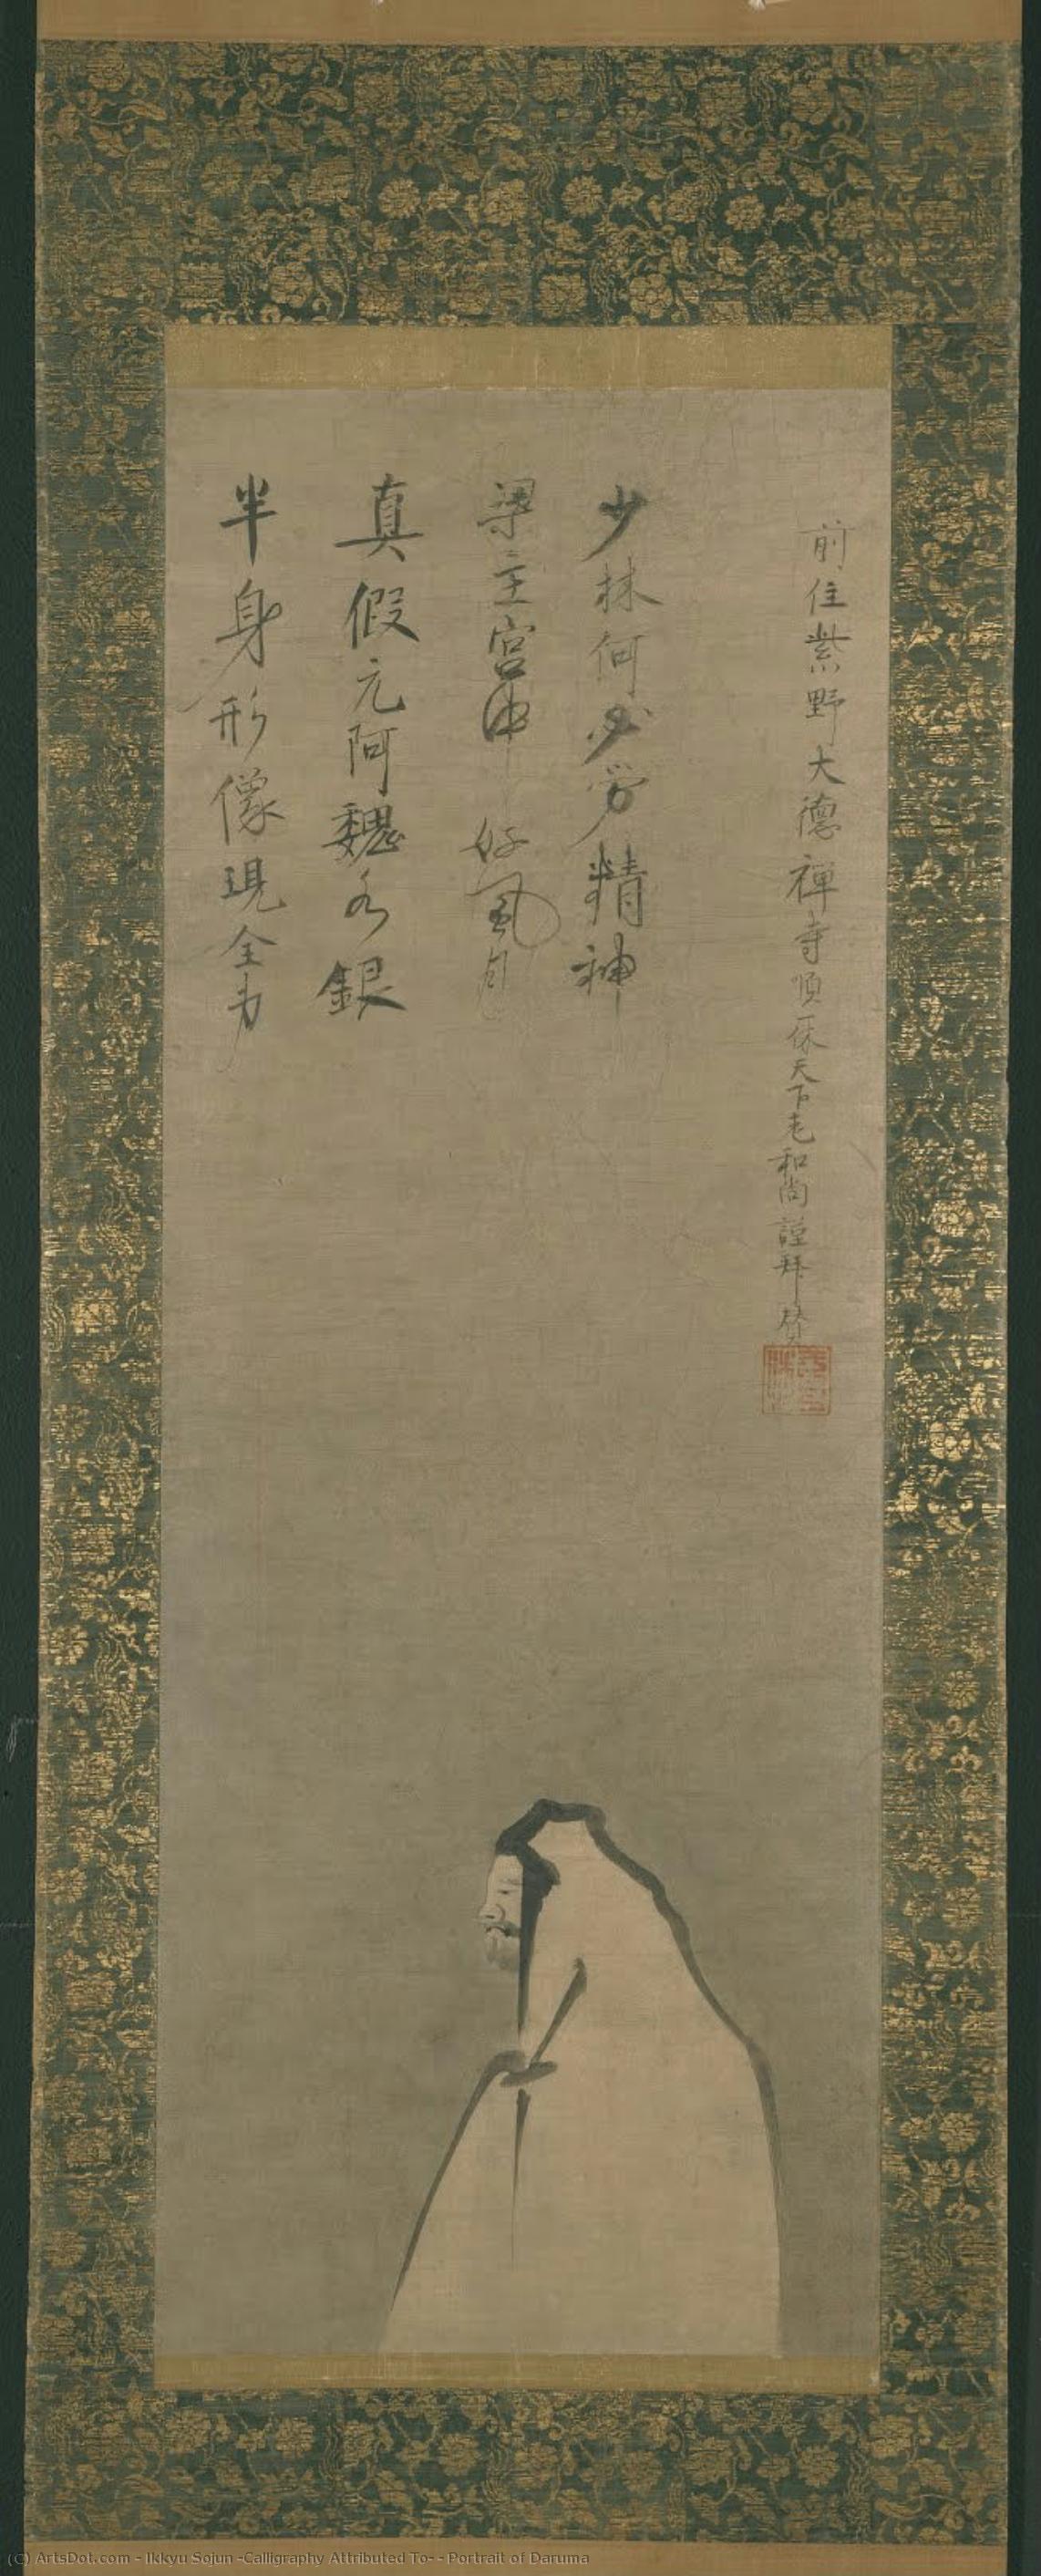 半身形像現全身
真假元阿魏水銀
梁主宮中好風月
少林何必労精神
前住紫野大徳禅寺順一休天下老和尚謹拝賛
(C) ArtsDot.com - Ikkyu Sojun -Calligraphy Attributed To- - Portrait of Daruma